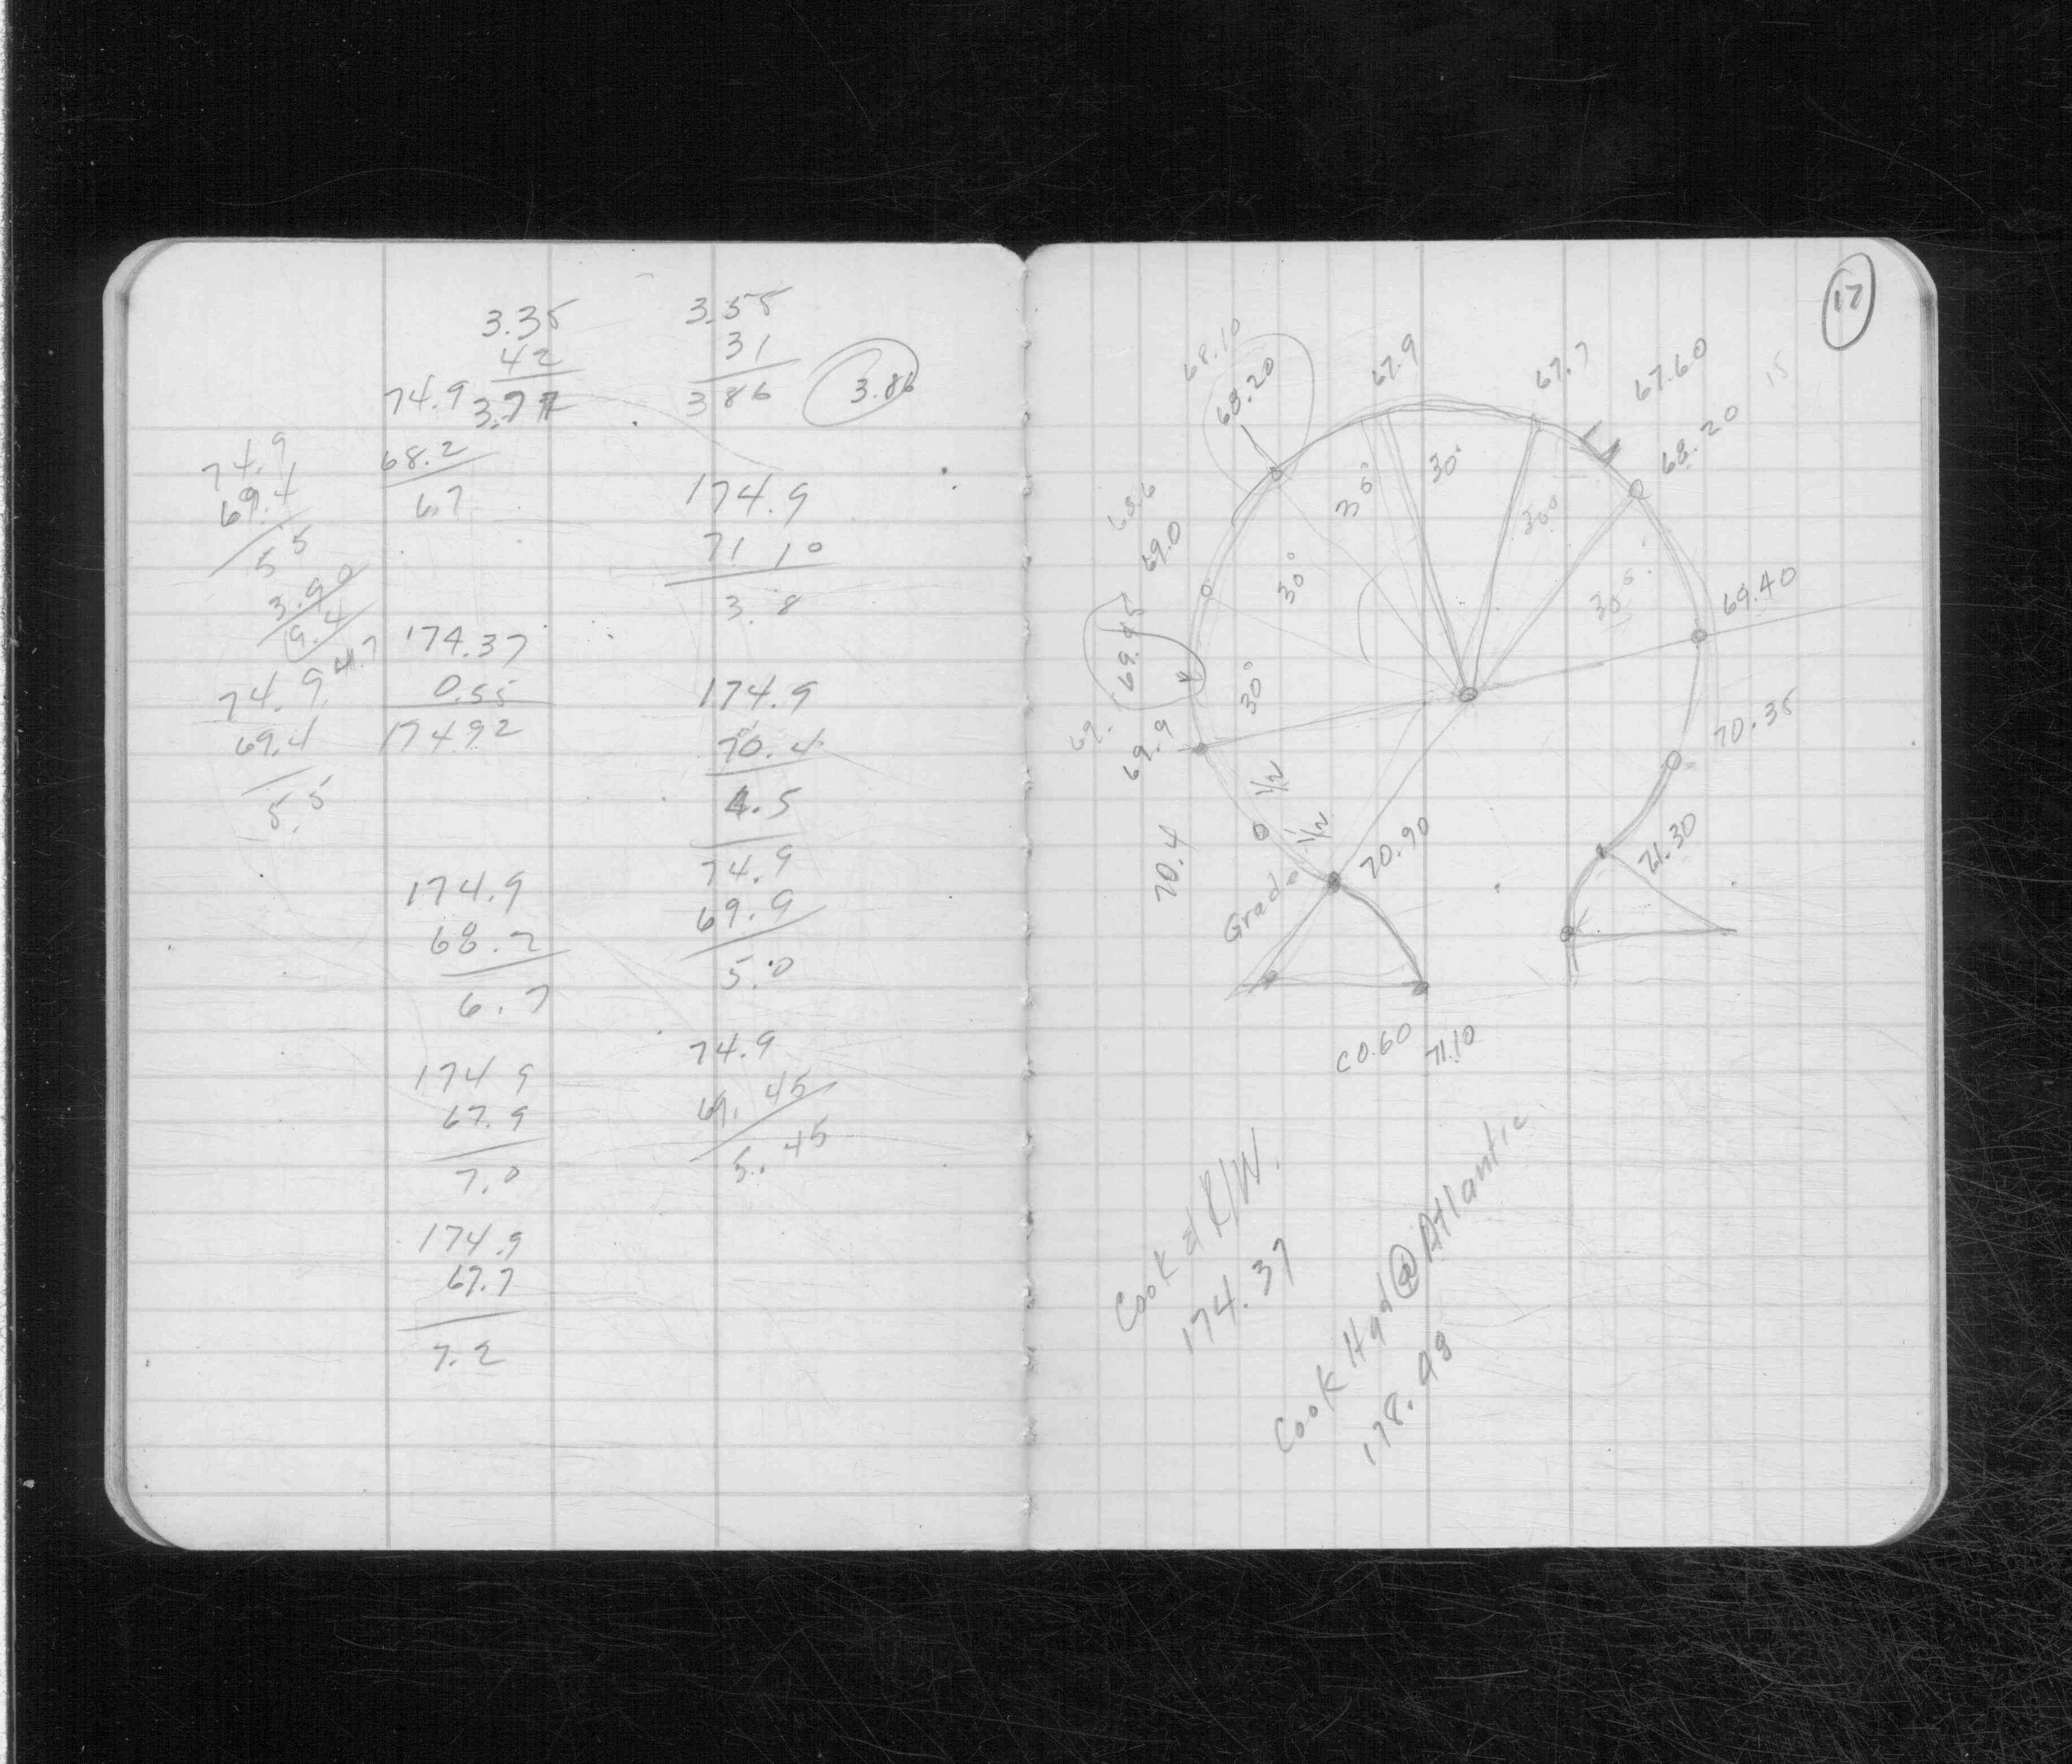 3.35
42
3.77
74.9
68.2
6.7
74.9
69.4
5.5
3.90
9.4
4.7
74.9
69.4
5.5
174.37
0.55
174.92
174.9
68.2
6.7
174.9
67.9
7.0
174.9
67.7
7.2
3.55
31
3.86
3.86
174.9
71.10
3.8
174.9
70.4
4.5
74.9
69.9
5.0
74.9
69.45
5.45
17
68.10
68.20
67.9
67.7
67.60
15
68.20
30°
30°
30°
30°
30°
30°
68.6
69.0
69.45
69.
69.9
69.40
70.35
70.4
1/2
1/2
Grad.
70.90
71.30
C0.60
71.10
Cook @ R/W.
174.37
Cook Hyd @ Atlantic
178.98